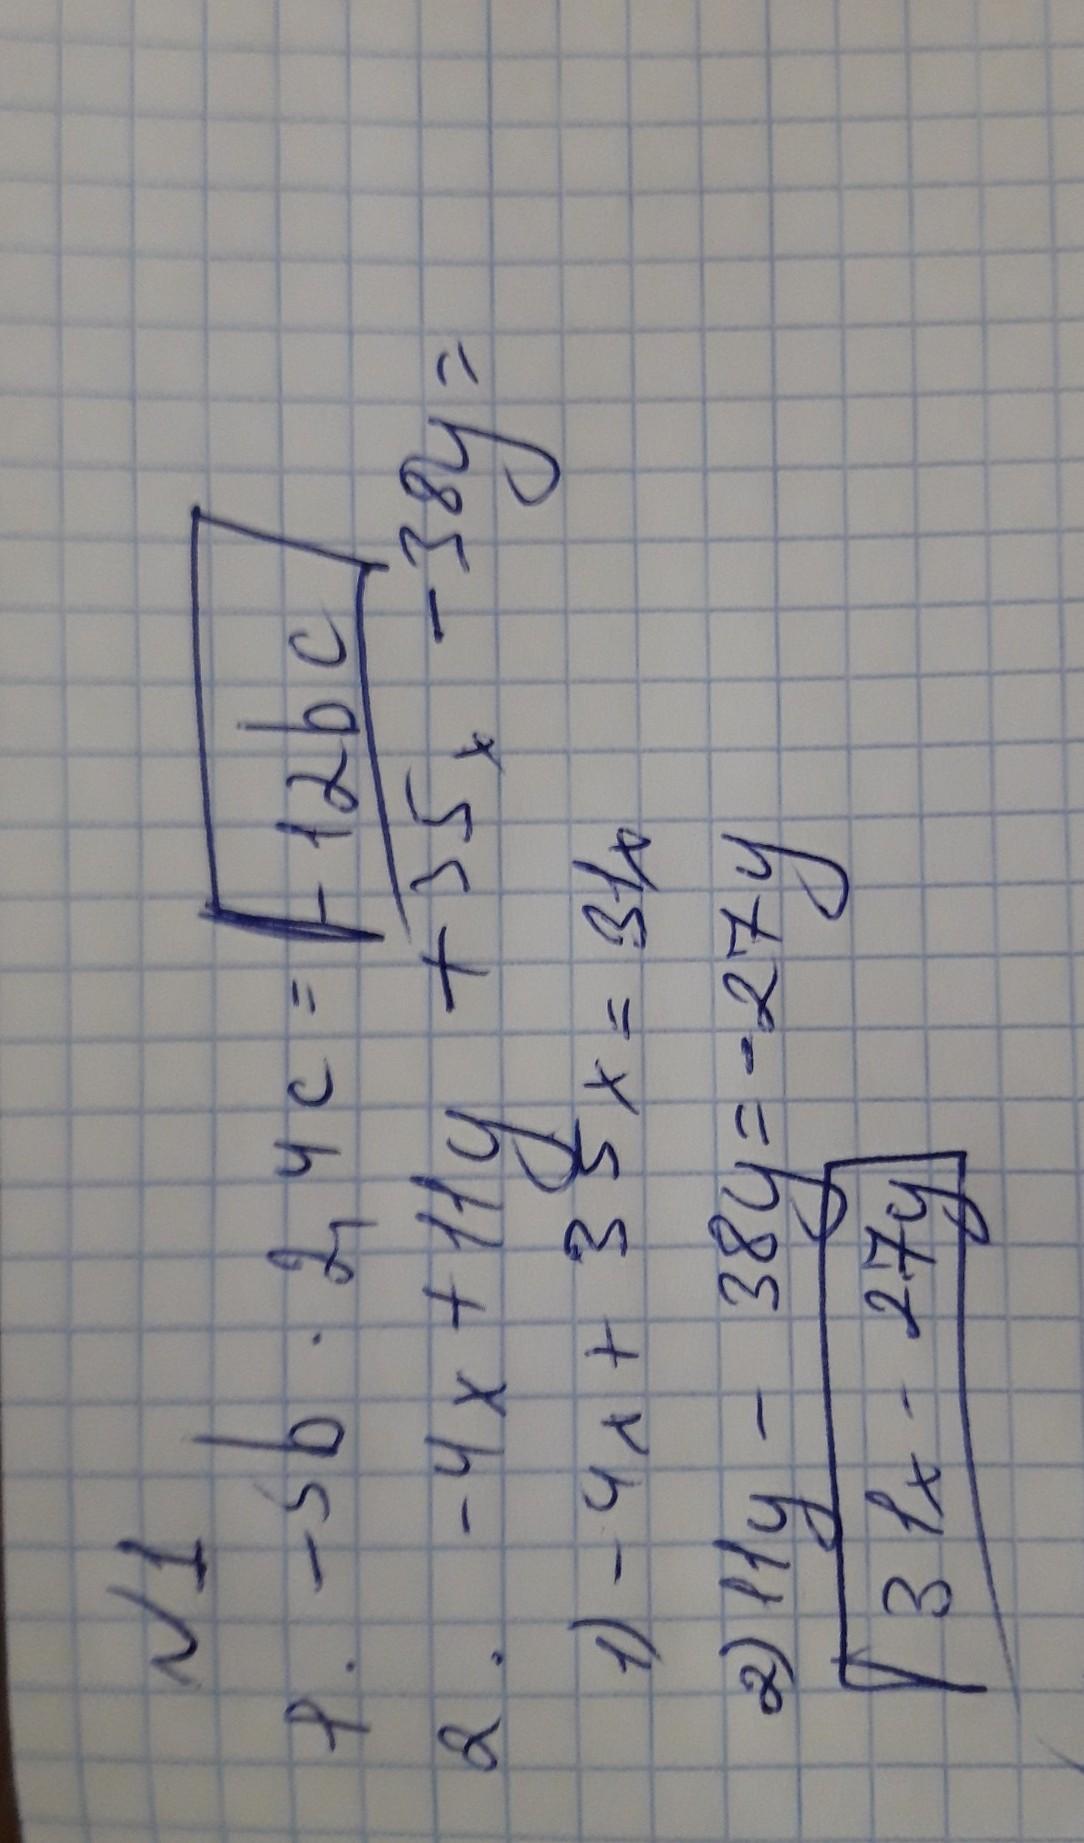 N1
1. -5b · 2,4c = -12bc
2. -4x + 11y + 35x - 38y =
1) -4x + 35x = 31x
2) 11y - 38y = -27y
31x - 27y